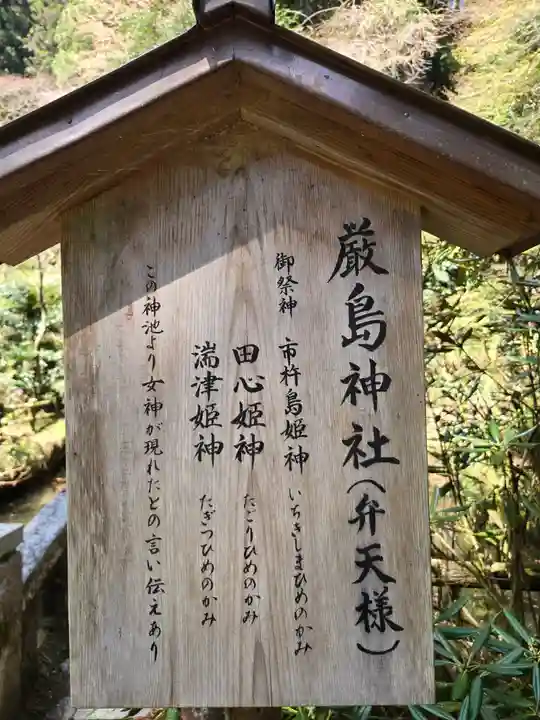 厳島神社（弁天様）
御祭神 市杵島姫神 いちきしまひめのかみ
田心姫神 たごりひめのかみ
湍津姫神 たぎつひめのかみ
この神池より女神が現れたとの言い伝えあり